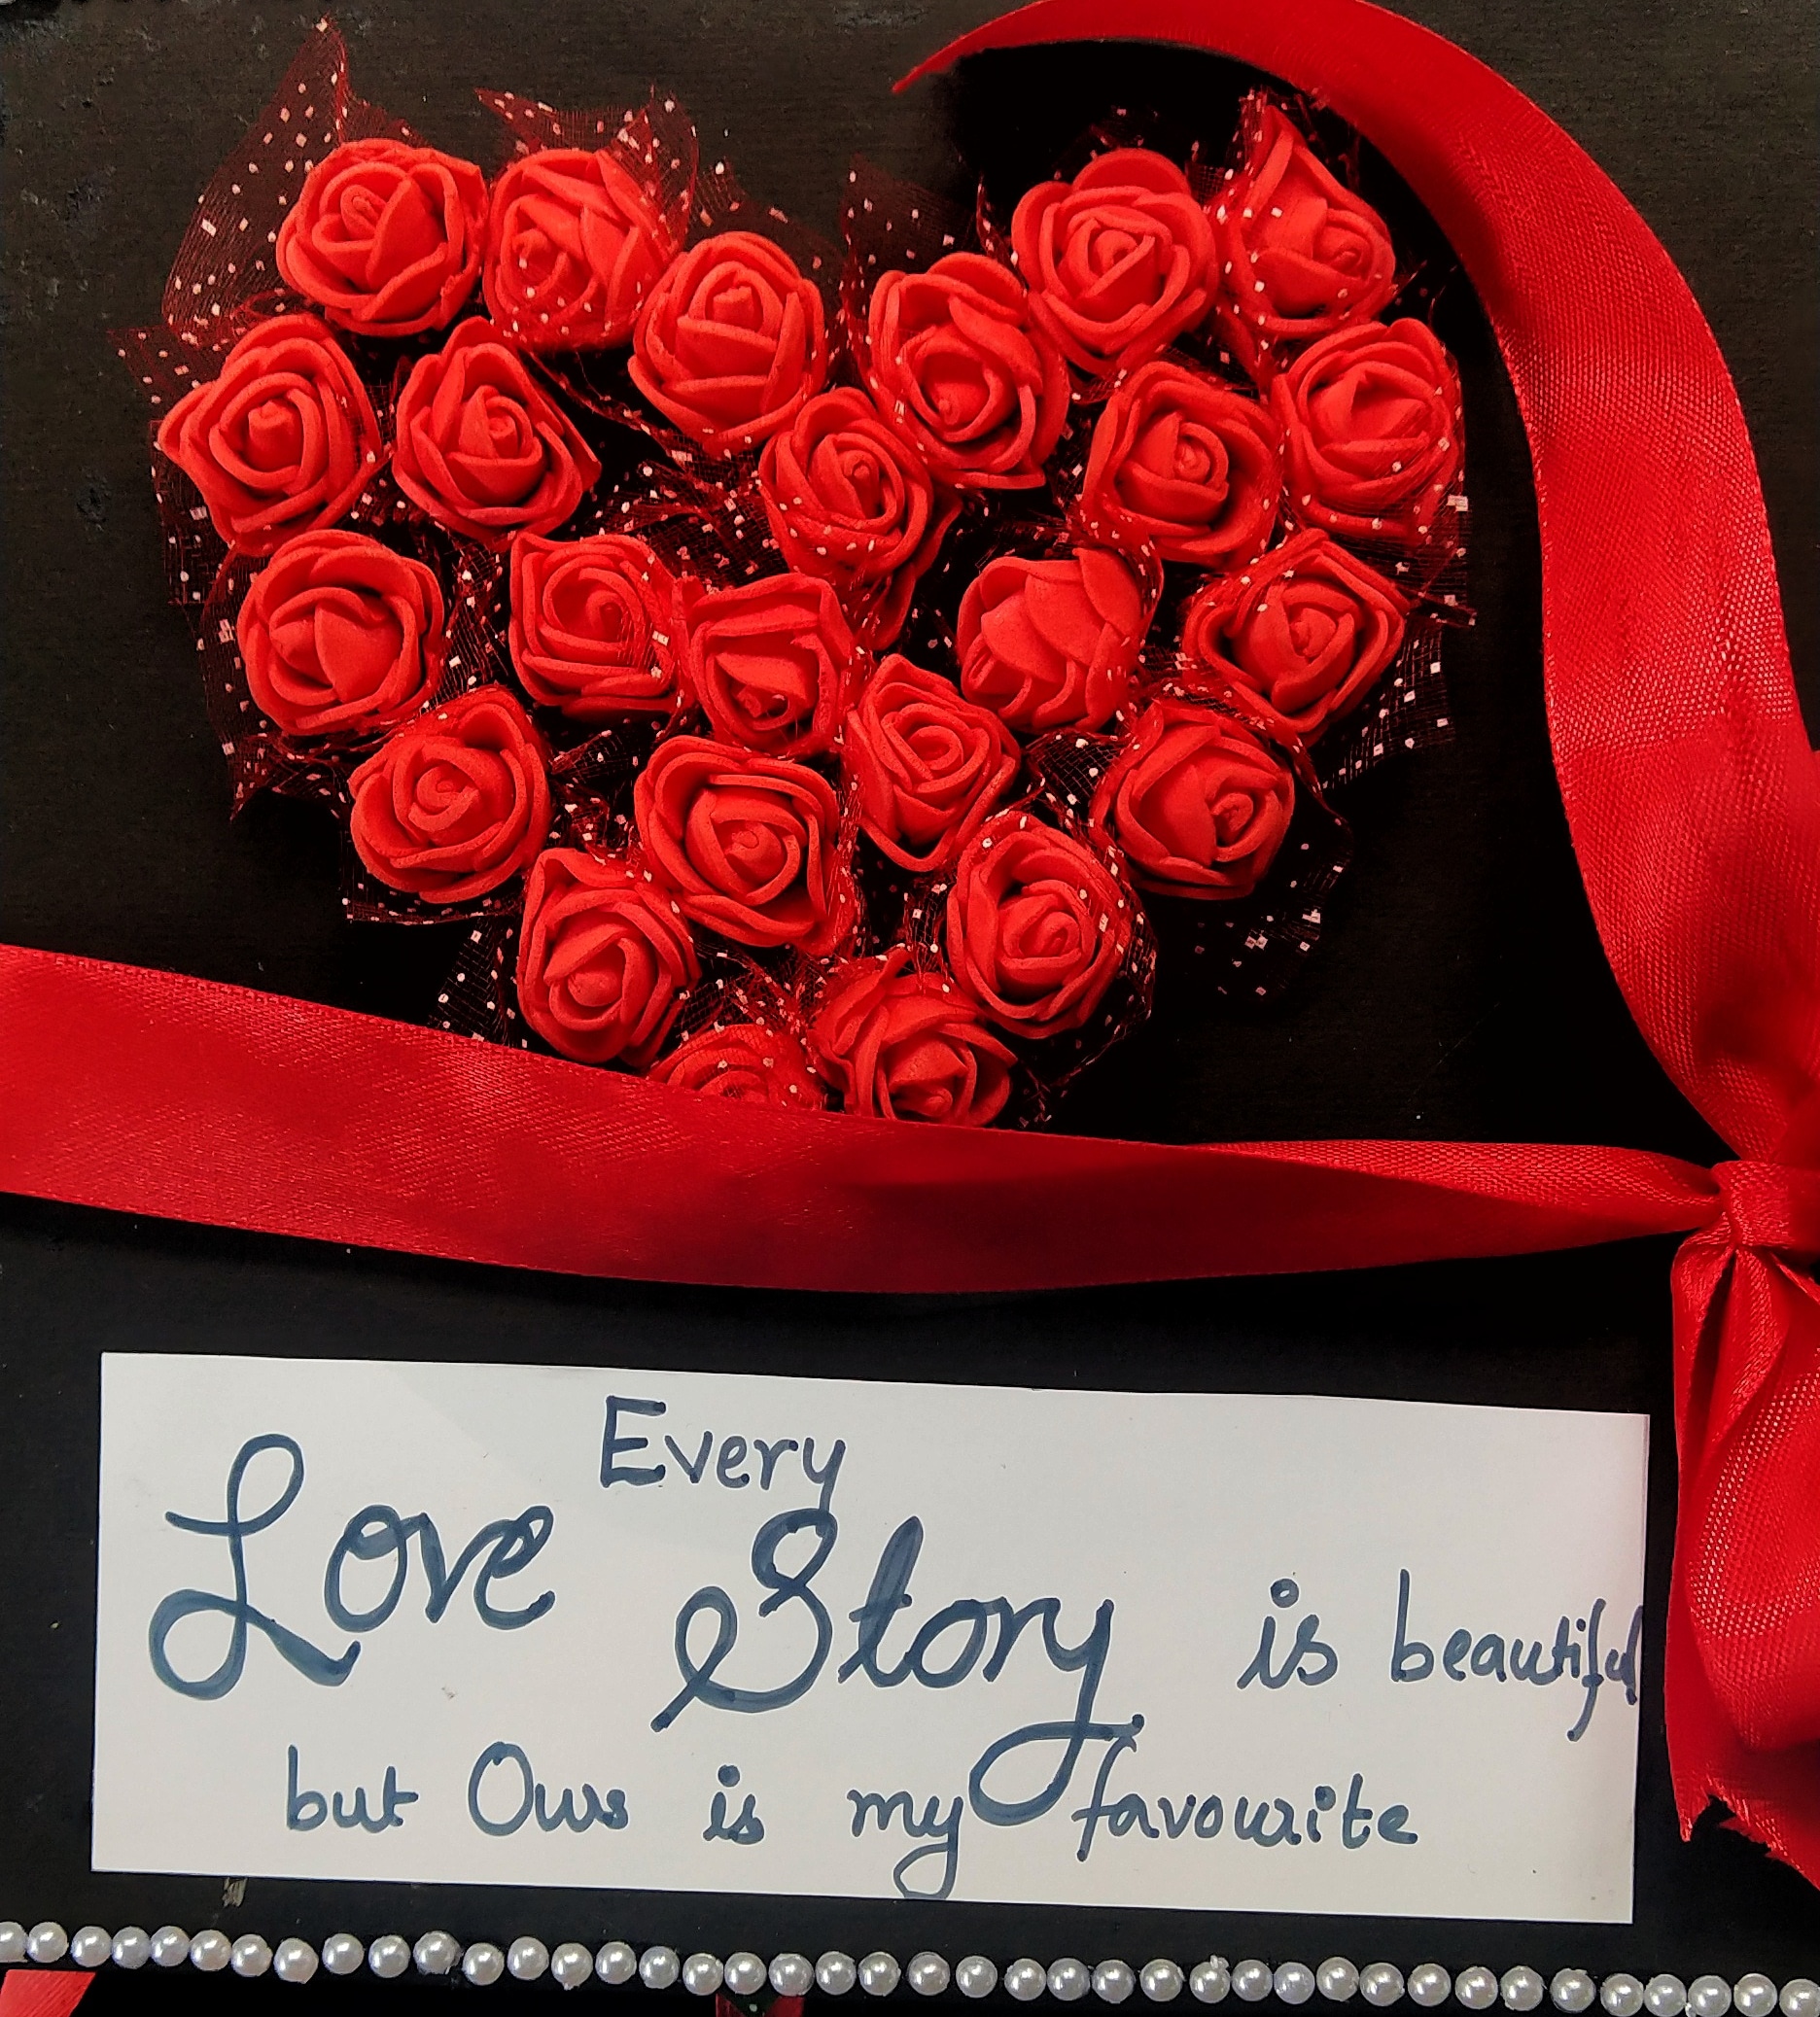 Every
Love Story is beautiful
but Ours is my favourite